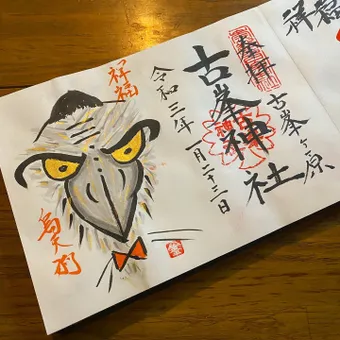 奉拝
古峯ヶ原
古峯神社
令和三年一月二十三日
祥福
烏天狗
祥福